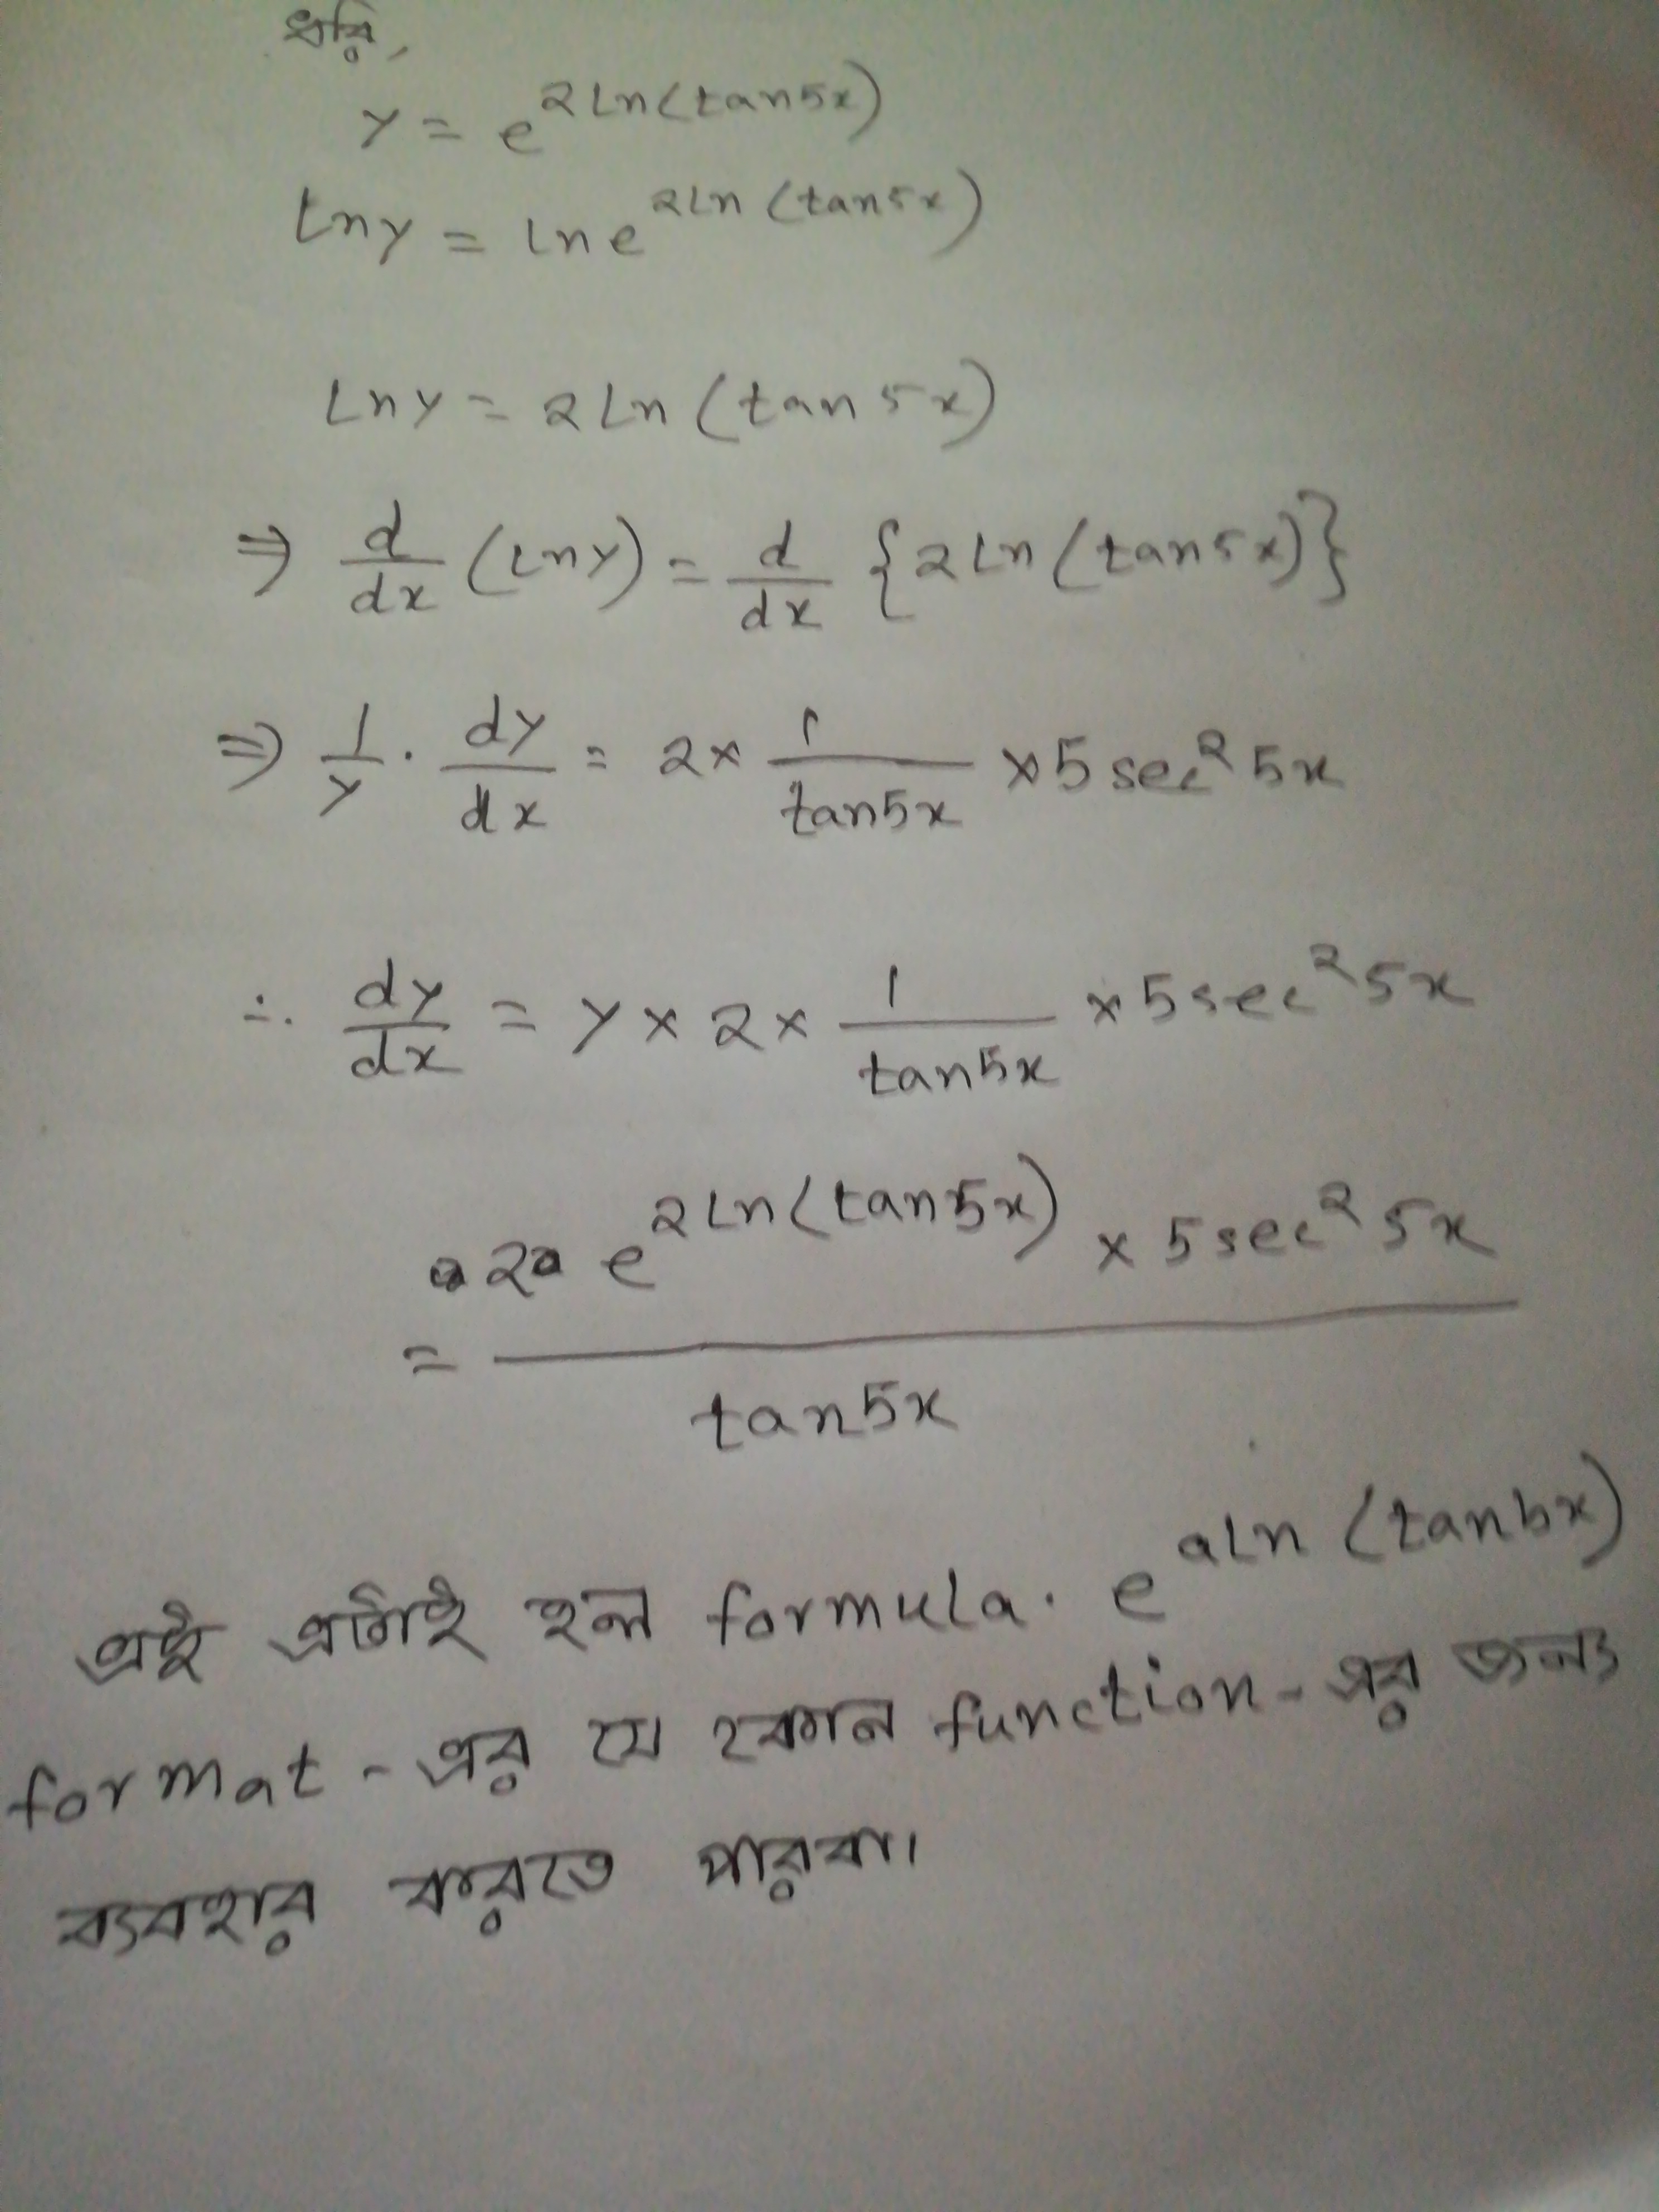 ধরি,
y = e^{2Ln(tan5x)}
Lny = lne^{2Ln(tan5x)}
Lny = 2Ln(tan5x)
⇒ d/dx (Lny) = d/dx {2Ln(tan5x)}
⇒ 1/y · dy/dx = 2 × 1/tan5x × 5sec²5x
∴ dy/dx = y × 2 × 1/tan5x × 5sec²5x
= 2 e^{2Ln(tan5x)} × 5sec²5x / tan5x
এই এটাই হল formula. e^{aLn(tanbx)}
format-এর যে কোন function-এর জন্য
ব্যবহার করতে পারবা।